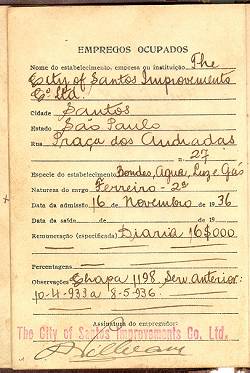 EMPREGOS OCUPADOS
Nome do estabelecimento, empresa ou instituição The
City of Santos Improvements
Cº Ltd.
Cidade Santos
Estado São Paulo
Rua Praça dos Andradas
n. 27.
Especie do estabelecimento Bondes, Agua, Luz e Gás
Natureza do cargo Ferreiro - 2ª
Data da admissão 16 de Novembro de 1936
Data da saida de de 19
Remuneração (especificada) Diaria 16$000.
Percentagens
Observações Chapa 1198. Serv. Anterior:
10-4-933 a 8-5-936.
Assinatura do empregador:
The City of Santos Improvements Co. Ltd.